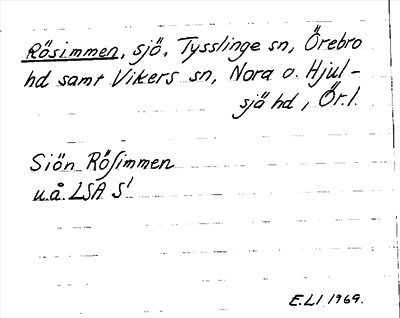 Rösimmen, sjö, Tysslinge sn, Örebro
hd samt Vikers sn, Nora o. Hjul-
sjö hd, Ör.l.
Siön Röſimmen
u.å. LSA S¹
E.LI 1969.